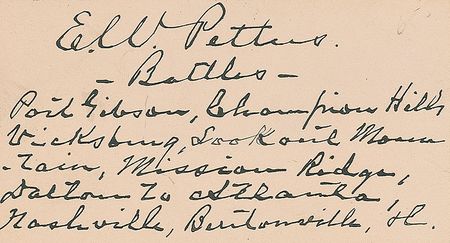 E. W. Pettus.
- Battles -
Port Gibson, Champion Hills
Vicksburg, Lookout Moun
-tain, Mission Ridge,
Dalton to Atlanta,
Nashville, Bentonville,